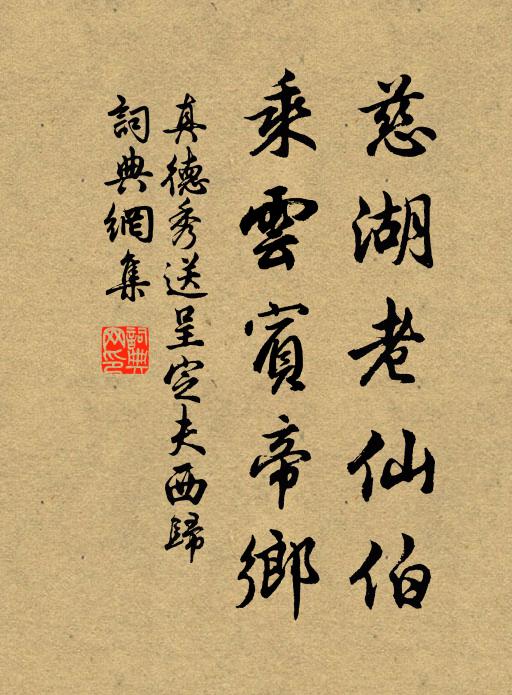 慈湖老仙伯
乘雲賓帝鄉
真德秀送呈定夫西歸
詞典網集
詞典网印